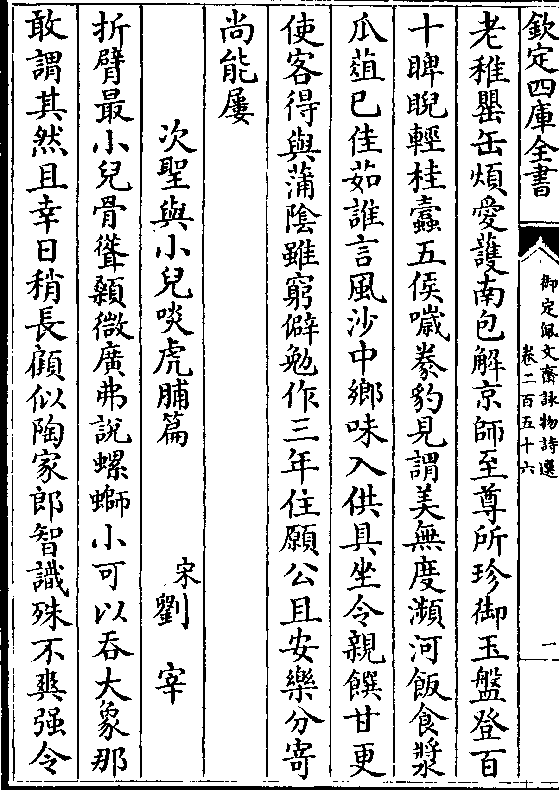 欽定四庫全書
御定佩文齋詠物詩選
卷二百五十六
一
老稚罌缶煩愛護南包解京師至尊所珍御玉盤登百
十睥睨輕桂蠹五侯噦豢豹見謂美無度瀕河飯食漿
瓜葅已佳茹誰言風沙中鄉味入供具坐令親饌甘更
使客得與蒲陰雖窮僻勉作三年住願公且安樂分寄
尚能屢
次聖與小兒啖虎脯篇
宋劉宰
折臂最小兒骨聳顙微廣弗說螺螄小可以吞大象那
敢謂其然且幸日稍長顧似陶家郎智識殊不爽强令